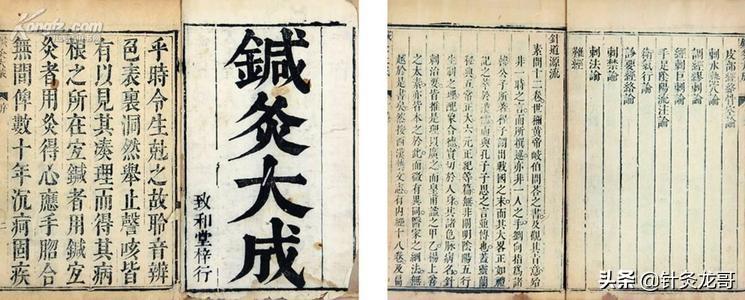 鍼灸大成
致和堂梓行
乎時令生尅之故聆音辨
色表裏洞然舉止謦咳皆
有以見其凑理而得其病
根之所在宜鍼者用鍼宜
灸者用灸得心應手脗合
無間俾數十年沉疴固疾
刺水熱穴論
調經繆刺論
經刺巨刺論
手足陰陽流注論
衛氣行論
診要經絡論
刺禁論
刺法論
難經
針道源流
素問十二卷世稱黃帝岐伯問荅之書及觀其旨意殆
非一時之言而所撰述亦非一人之手劉向指為諸
韓公子所著程子謂出戰國之末而其大畧正如禮
記之萃於漢儒而與孔子子思之言並傳也蓋靈蘭
秘典五常正大六元正紀等篇無非闡明陰陽五行
生制之理配象合德實切於人身其諸色脉病名針
刺治要皆推是理以廣之而皇甫謐之甲乙楊上善
之太素亦皆本之於此而微有異同醫家之綱法無
越於是書矣然按西漢藝文志有內經十八卷及扁
Kongfz.com
头条 @针灸龙哥